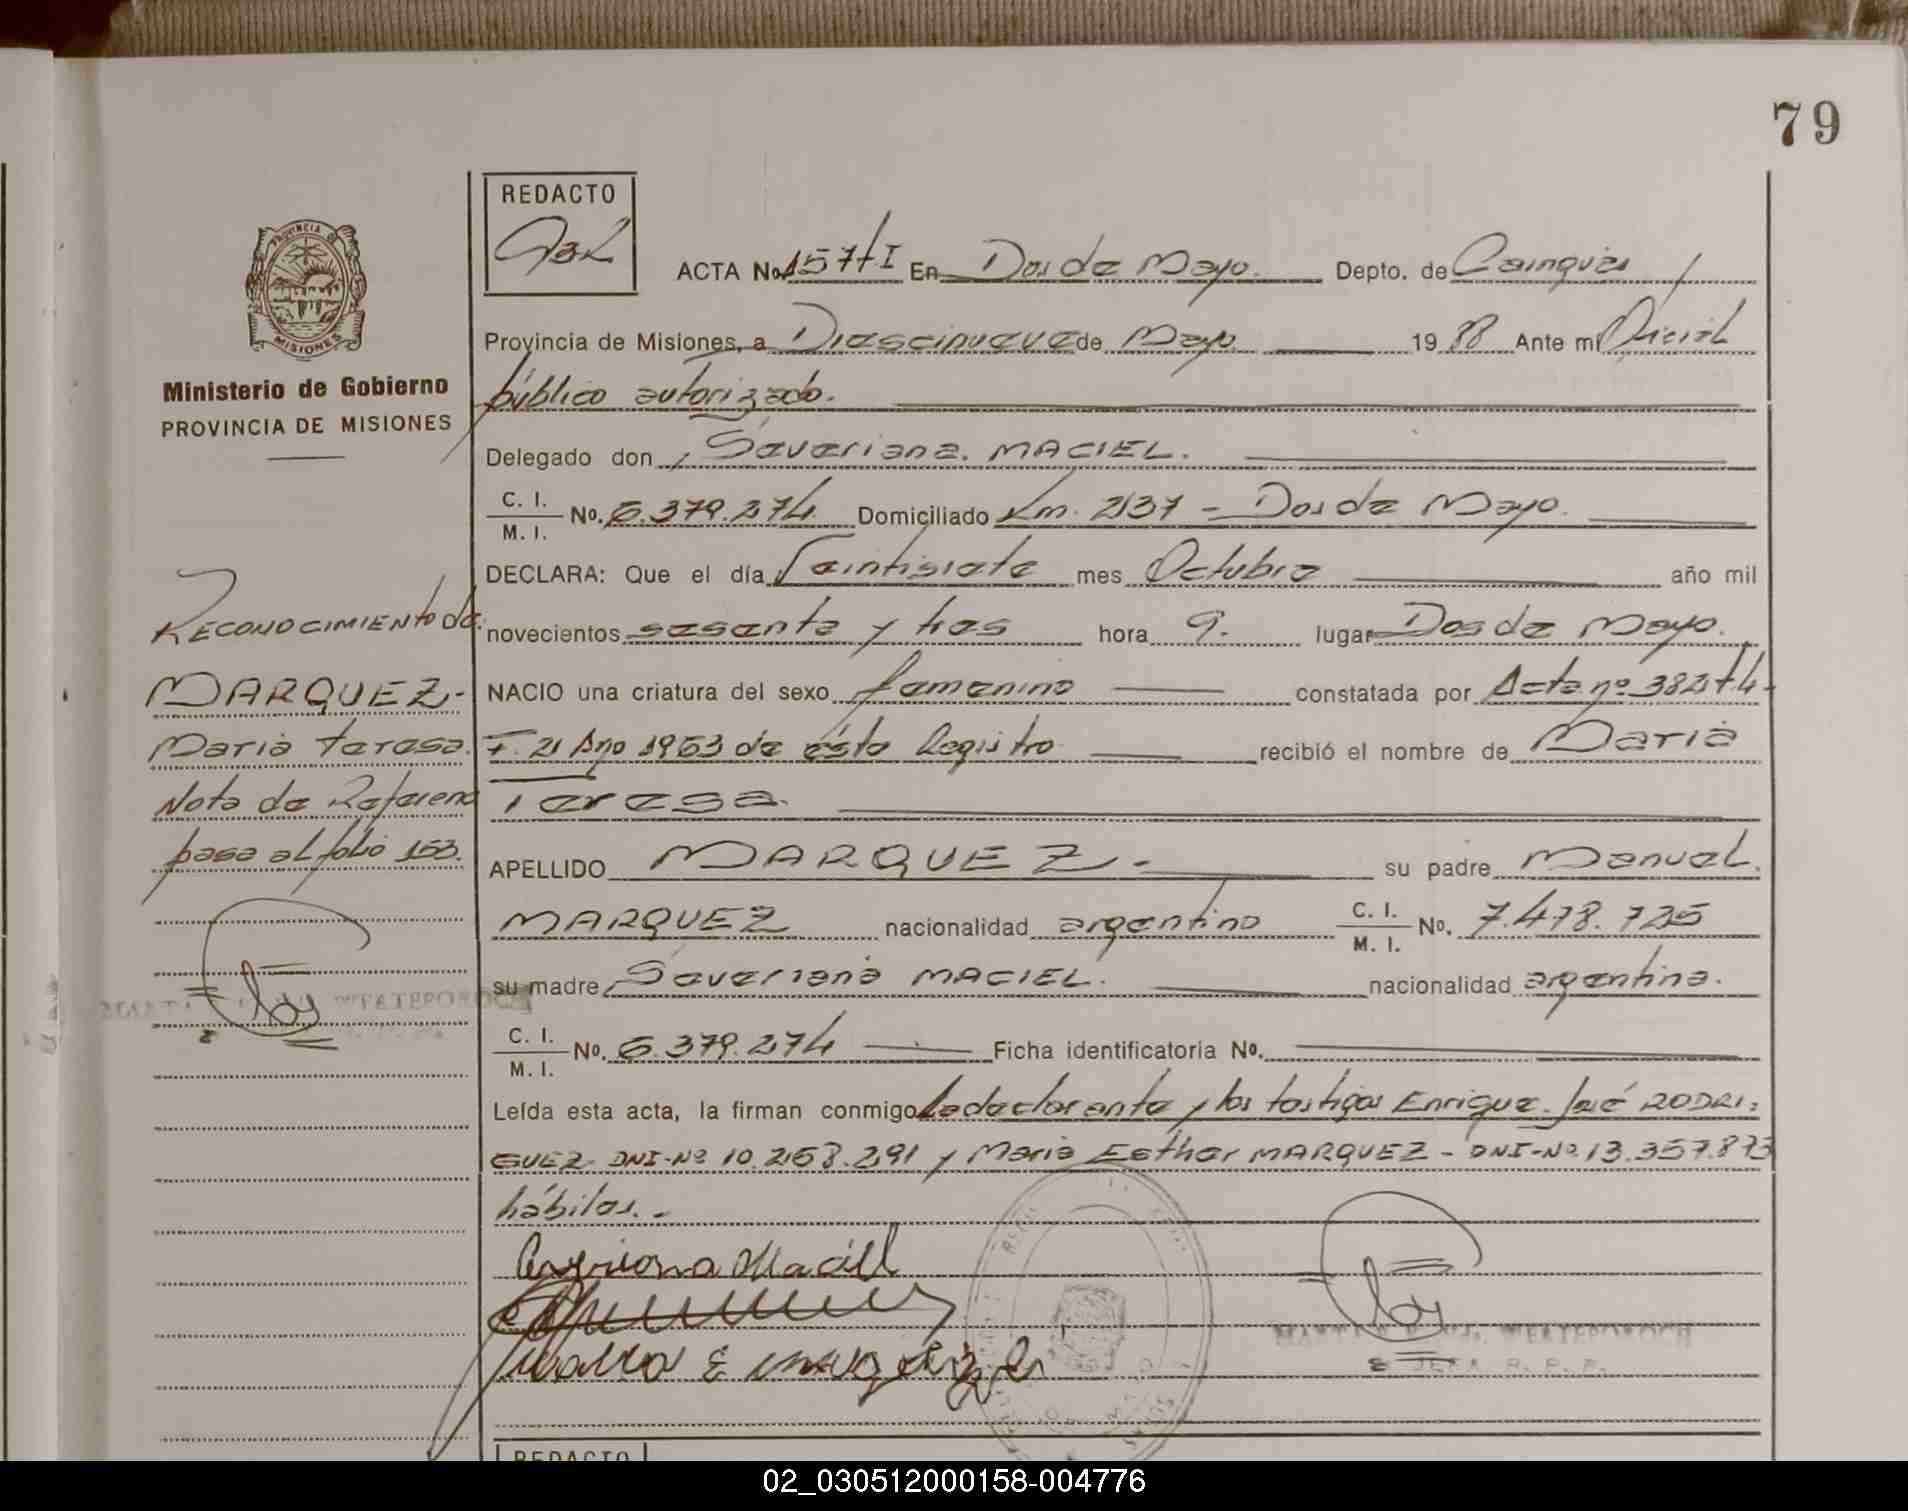 79
REDACTO
ACTA No. 157 t I En Dos de Mayo. Depto. de Cainguás
Provincia de Misiones, a Diescinueve de Mayo 1988 Ante mi Oficial
público autorizado.
Delegado don Severiana MACIEL.
C. I.
M. I. No. 6.379.274 Domiciliado Km. 237 - Dos de Mayo.
DECLARA: Que el día Veintisiete mes Octubre año mil
novecientos sesenta y tres hora 9. lugar Dos de Mayo.
NACIO una criatura del sexo femenino constatada por Acta nº 382 t 4
F. 21 Año 1963 de ésta Registro recibió el nombre de Maria
Teresa.
APELLIDO MARQUEZ.- su padre Manuel
MARQUEZ nacionalidad argentino C. I. M. I. No. 7.478.725
su madre Severiana MACIEL. nacionalidad argentina.
C. I.
M. I. No. 6.379.274 Ficha identificatoria No.
Leída esta acta, la firman conmigo la declarante y los testigos Enrique José RODRI=
GUEZ DNI-Nº 10.268.291 y Maria Esther MARQUEZ - DNI-Nº 13.357.873
hábiles.-
PROVINCIA DE
MISIONES
Ministerio de Gobierno
PROVINCIA DE MISIONES
RECONOCIMIENTO de
MARQUEZ-
Maria teresa.
Nota de Referenc
pasa al folio 153.
REDACTO
02_030512000158-004776